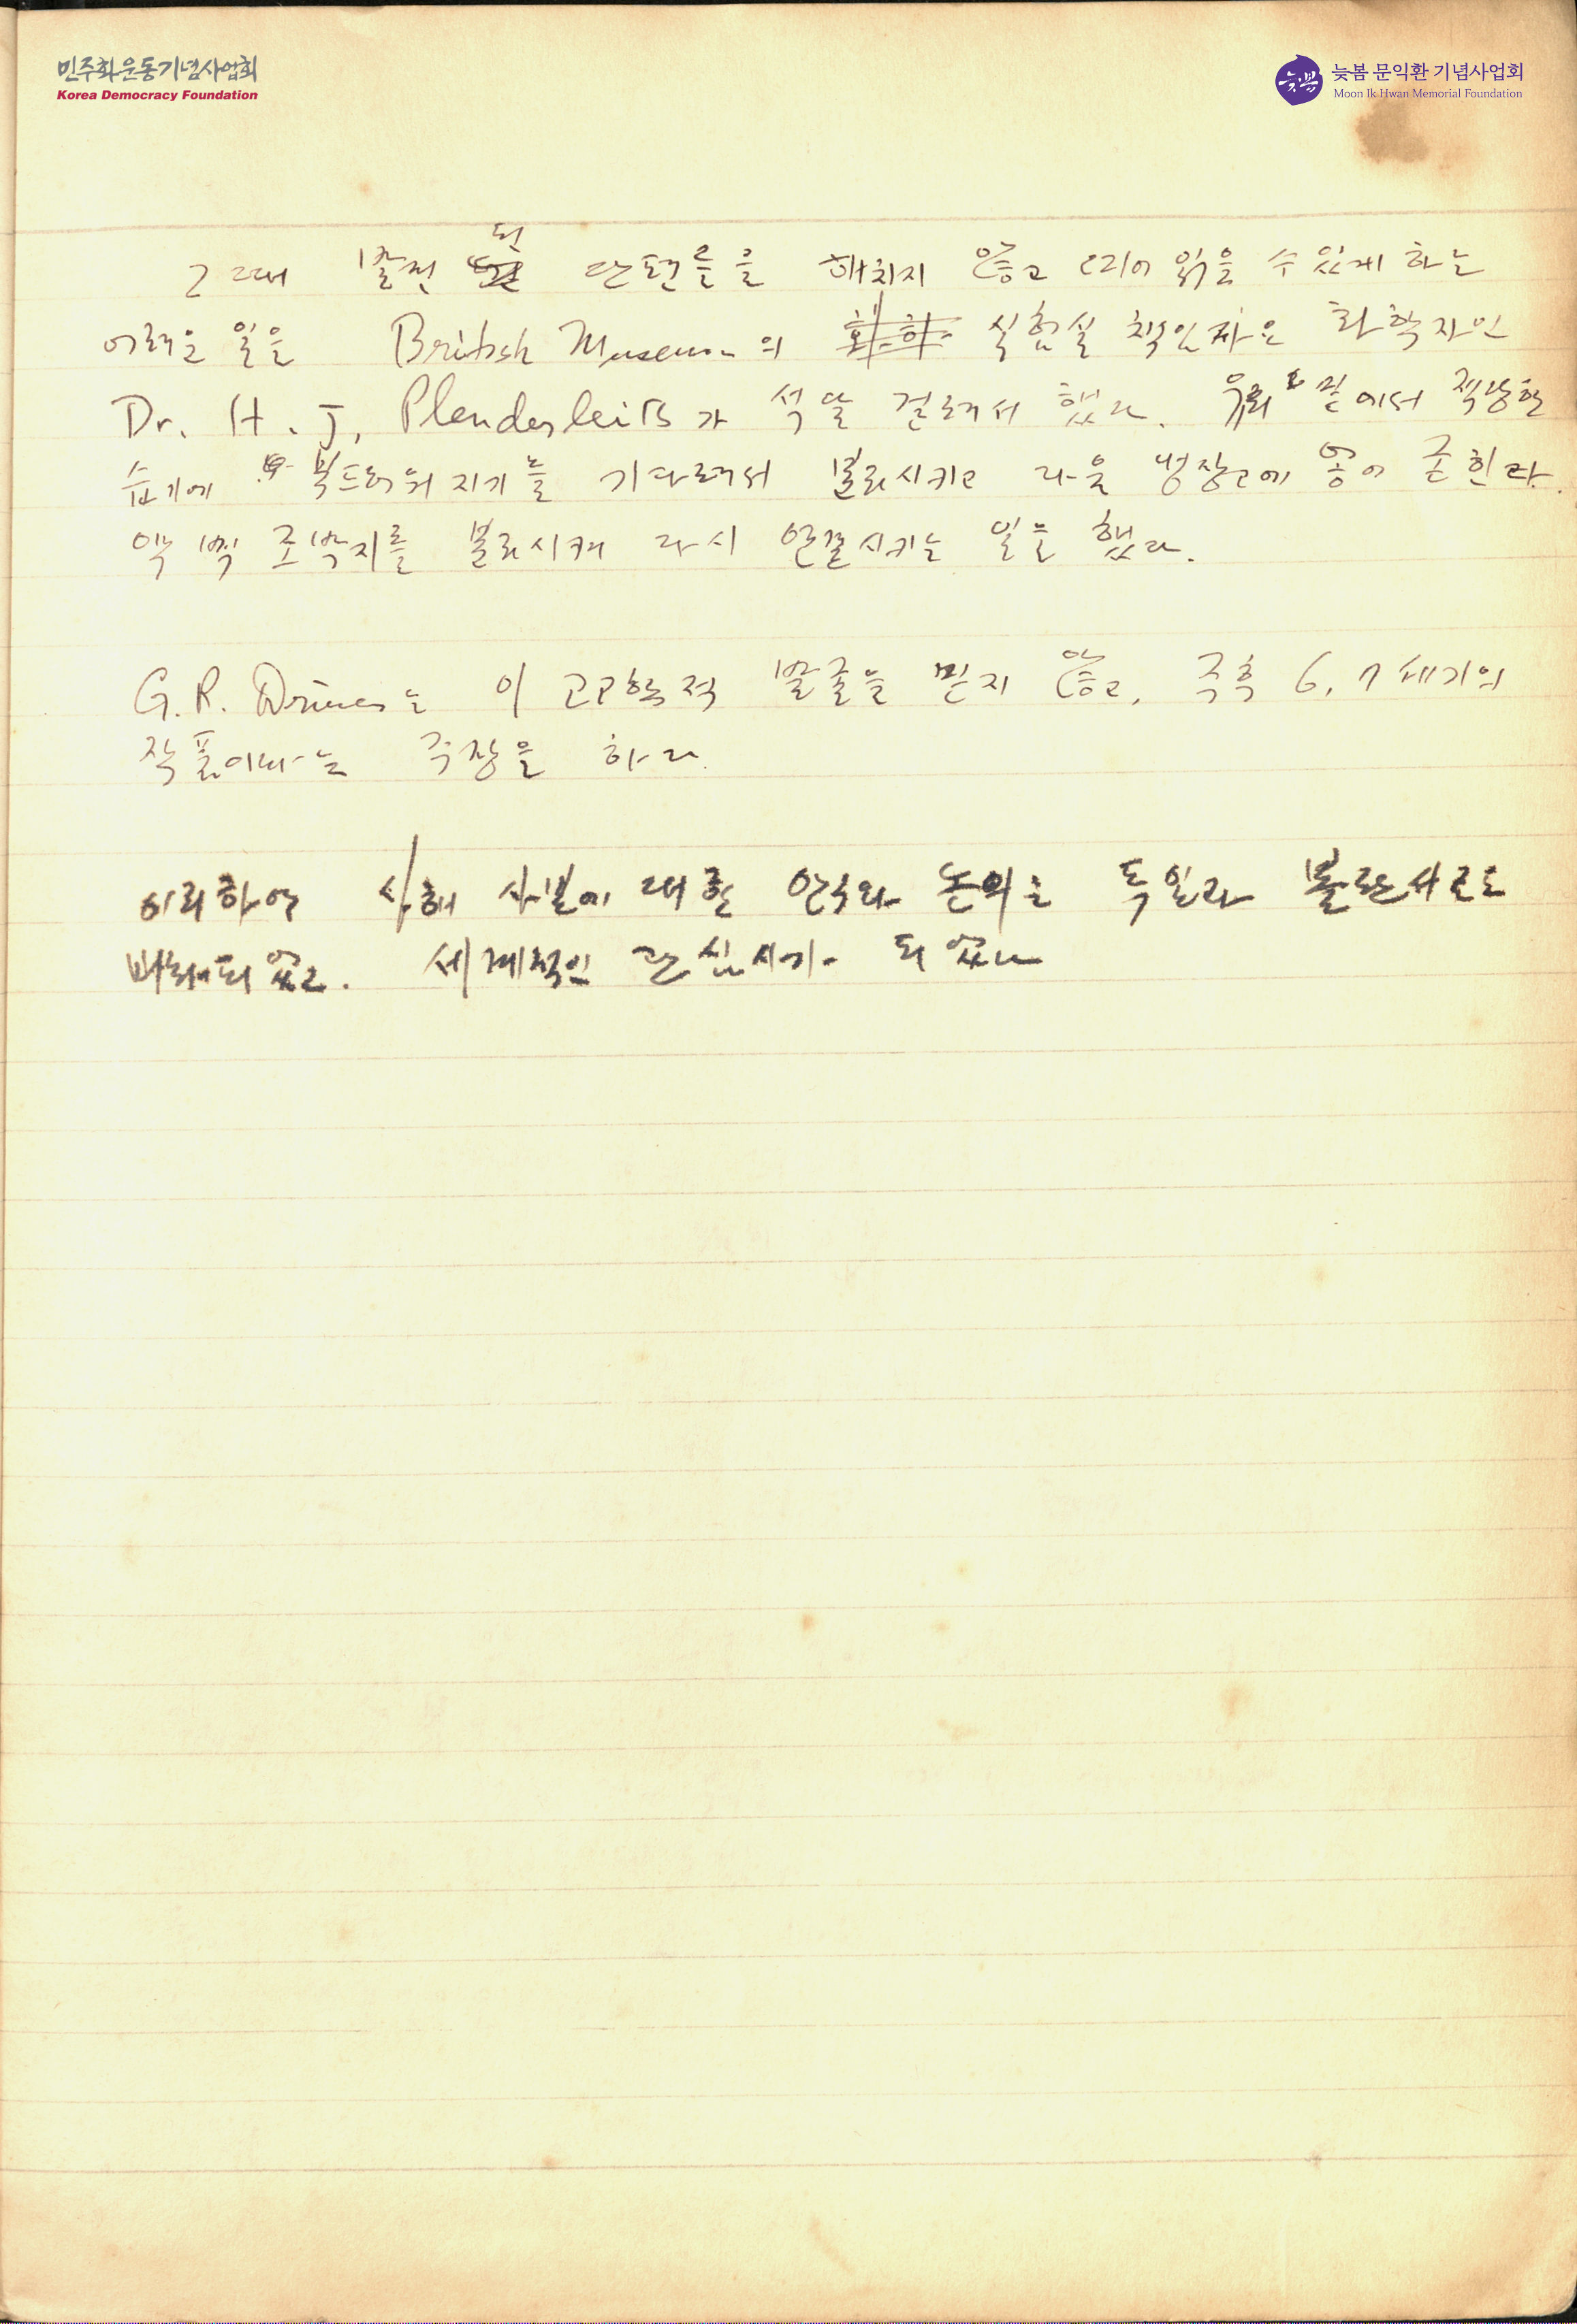 민주화운동기념사업회
Korea Democracy Foundation
늦봄 문익환 기념사업회
Moon Ik Hwan Memorial Foundation
그때 발견된 단편들을 해치지 않고 떼어 읽을 수 있게 하는
어려운 일을 British Museum의 실험실 책임자요 화학자인
Dr. H. J. Plenderleith가 석달 걸려서 했다. 유리 밑에서 적당한
습기에 부드러워지기를 기다려서 분리시키고 다음 냉장고에 넣어 굳힌다.
약 조박지를 분리시켜 다시 연결시키는 일을 했다.
G. R. Driver는 이 고고학적 발굴을 믿지 않고, 주후 6, 7세기의
작품이라는 주장을 하다.
이리하여 사해 사본에 대한 연구와 논의는 독일과 불란서로도
세계적인 관심사가 되었다